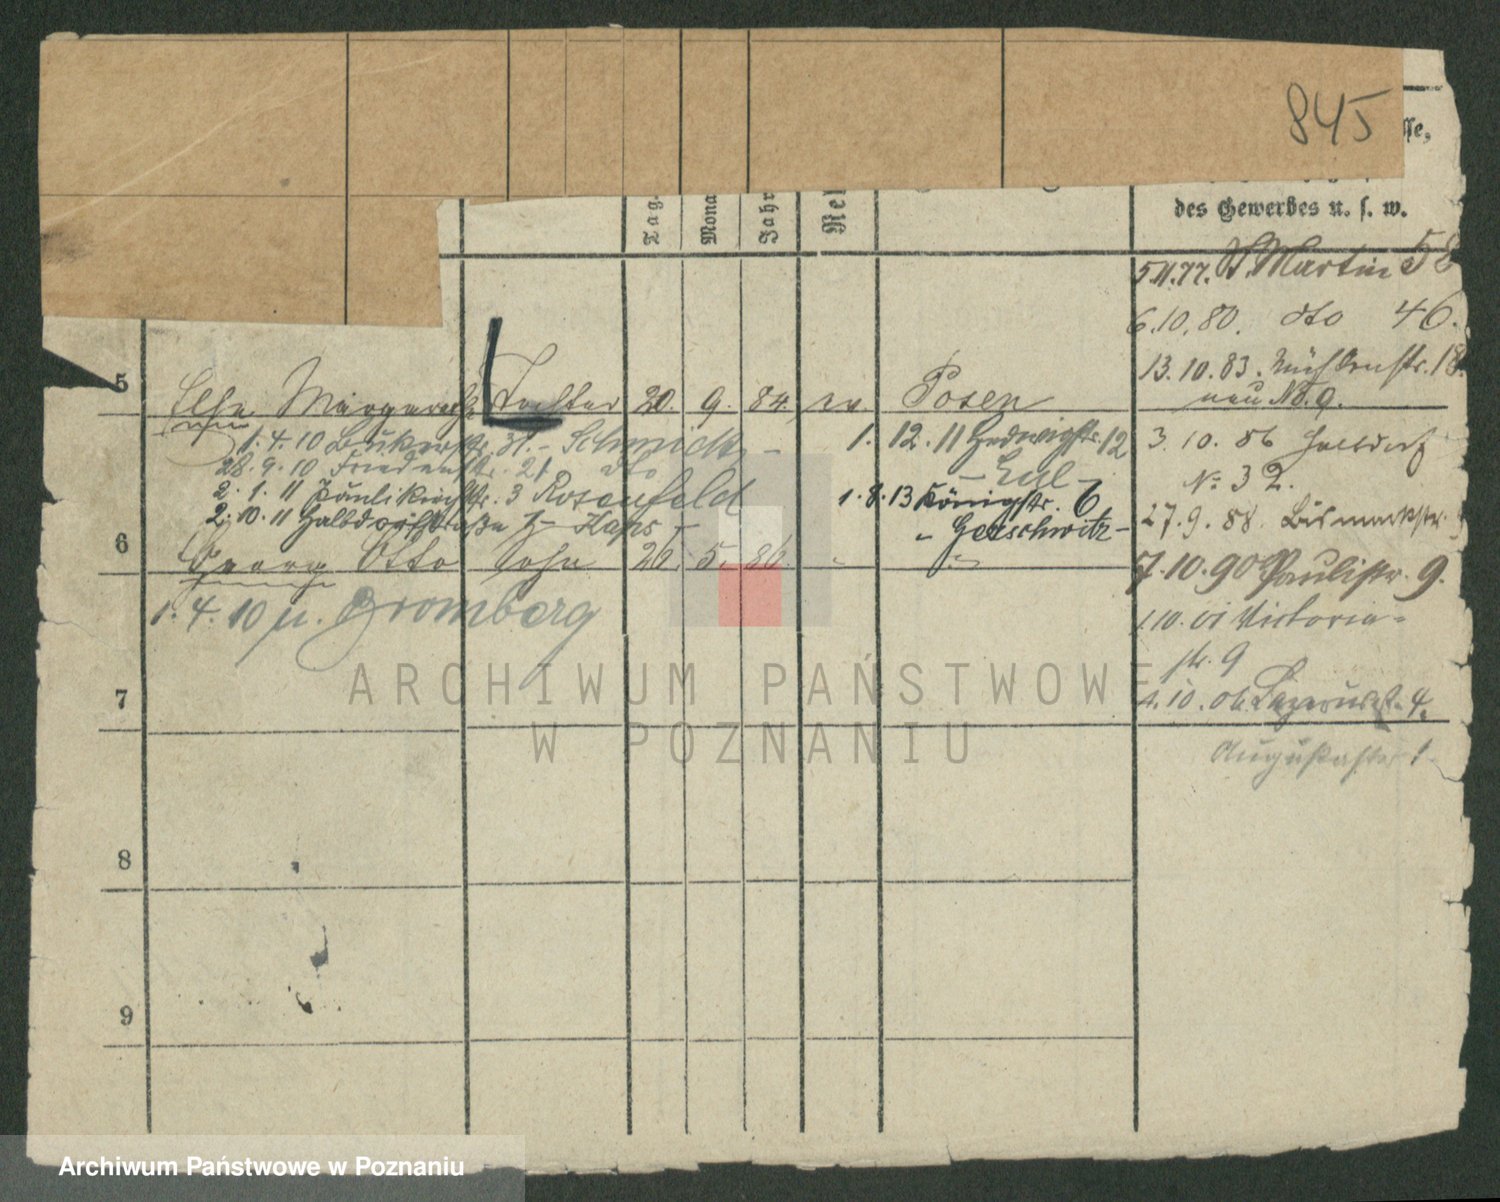 845
sse,
Tag
Mona
Jahr
Rel
des Gewerbes u. s. w.
5.11.77. St. Martin 58
6.10.80. dto 46.
13.10.83. Mühlenstr. 18.
neu No. 9.
5
Else Margarethe Tochter 20. 9. 84. ev. Posen
1.4.10 Bukerstr. 31. - Schmidt -
28.9.10 Friedenstr. 21 dto
2.1.11 Paulikirchstr. 3 Rosenfeld
2.10.11 Halbdorfstraße - Haps -
1.12.11 Hedwigstr. 12
1.8.13 Königstr. 6
- Gerschwitz -
3.10.86 Halbdorf
No 32.
27.9.88. Bismarckstr.
6
Georg Otto Sohn 26. 5. 86. " "
7.10.90 Paulistr. 9.
1.4.10 n. Bromberg
1.10.01 Victoria-
str. 9
7
4.10.06 Lazarusstr. 4.
Augustastr 1
8
9
ARCHIWUM PAŃSTWOWE
W POZNANIU
Archiwum Państwowe w Poznaniu